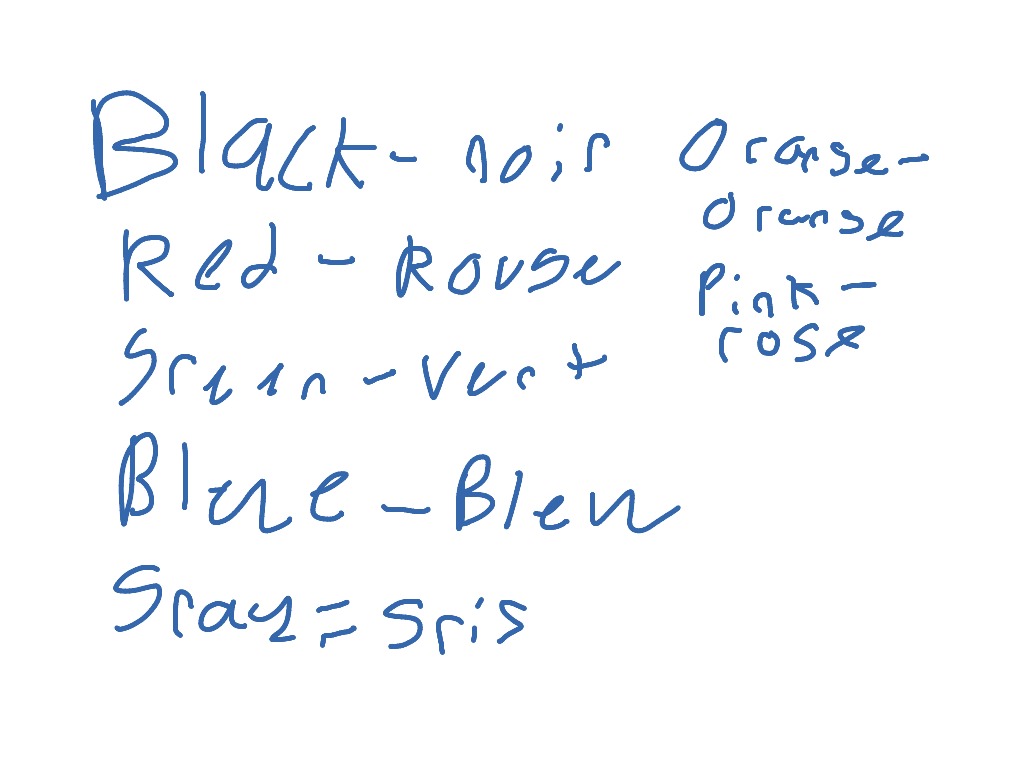 Black - noir
Red - Rouge
Green - Vert
Blue - Bleu
Gray = Gris
Orange -
Orange
Pink -
rose